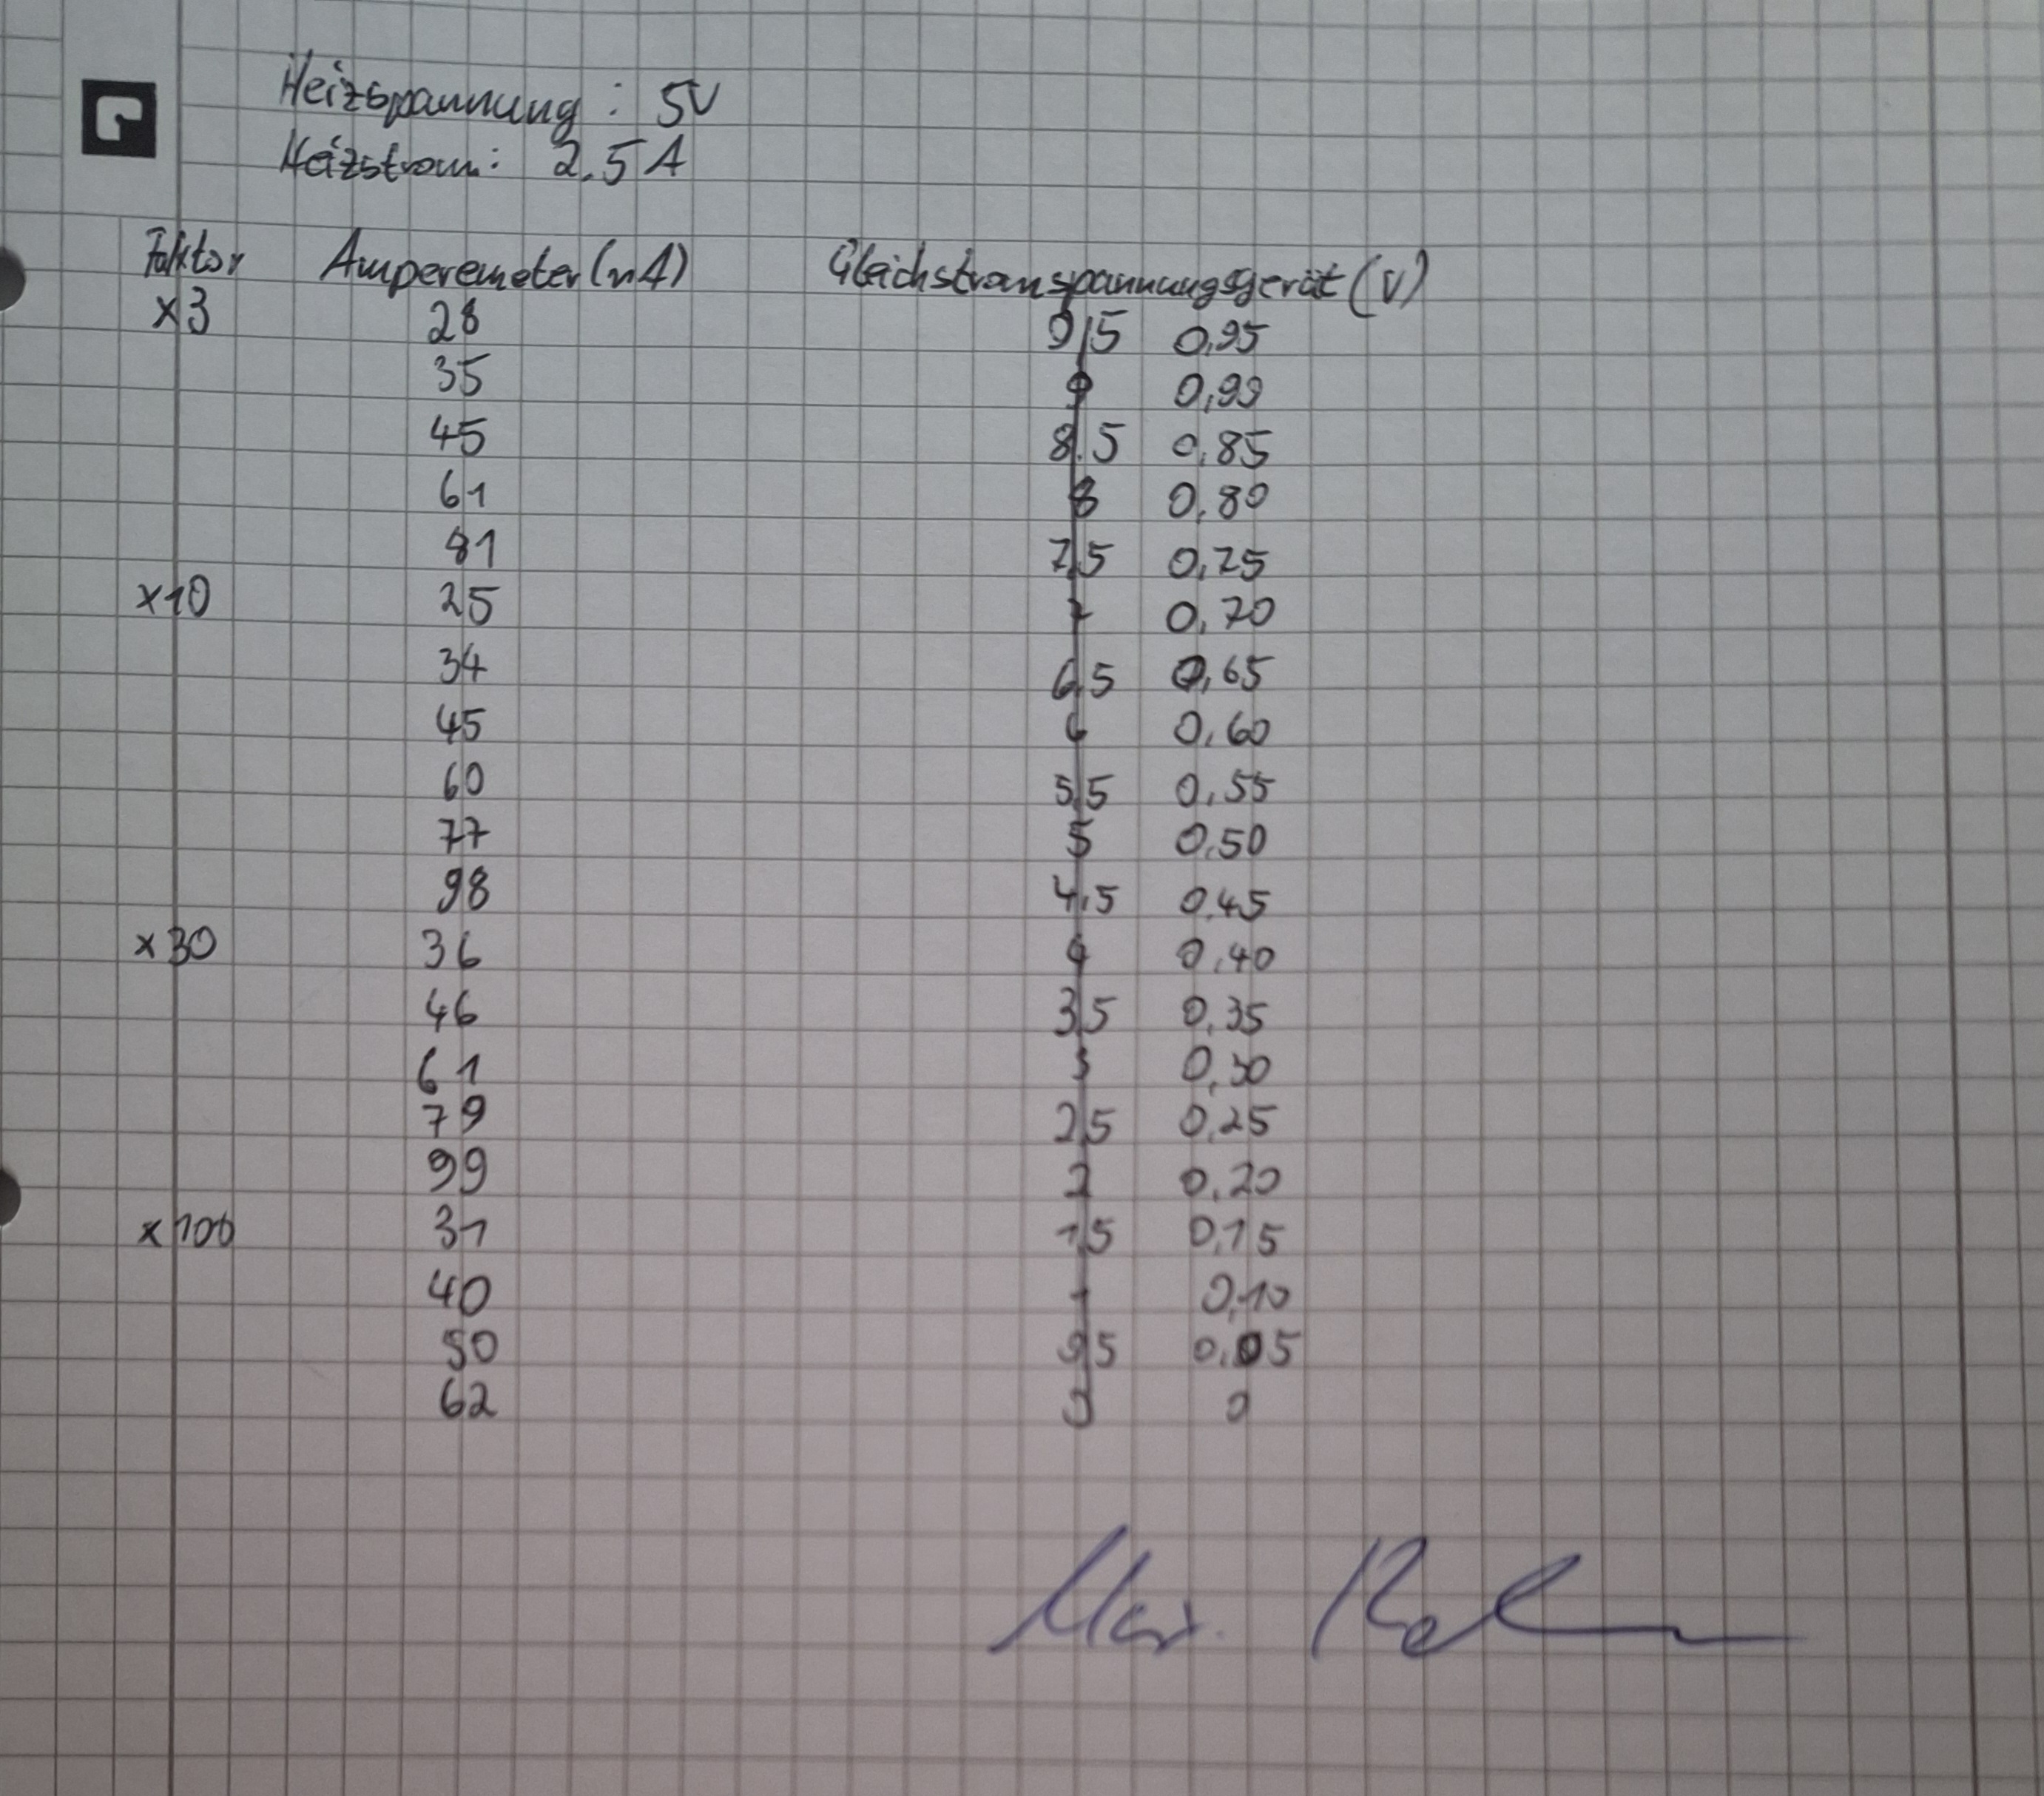 Heizspannung: 5V
Heizstrom: 2.5A
Faktor Amperemeter (nA) Gleichstromspannungsgerät (V)
x3 28 9,5 0,95
35 9 0,99
45 8.5 0,85
61 8 0,80
81 7,5 0,75
x10 25 7 0,70
34 6,5 0,65
45 6 0,60
60 5,5 0,55
77 5 0,50
98 4,5 0,45
x30 36 4 0,40
46 3,5 0,35
61 3 0,30
79 2,5 0,25
99 2 0,20
x100 31 1,5 0,15
40 1 0,10
50 0,5 0,05
62 0 0